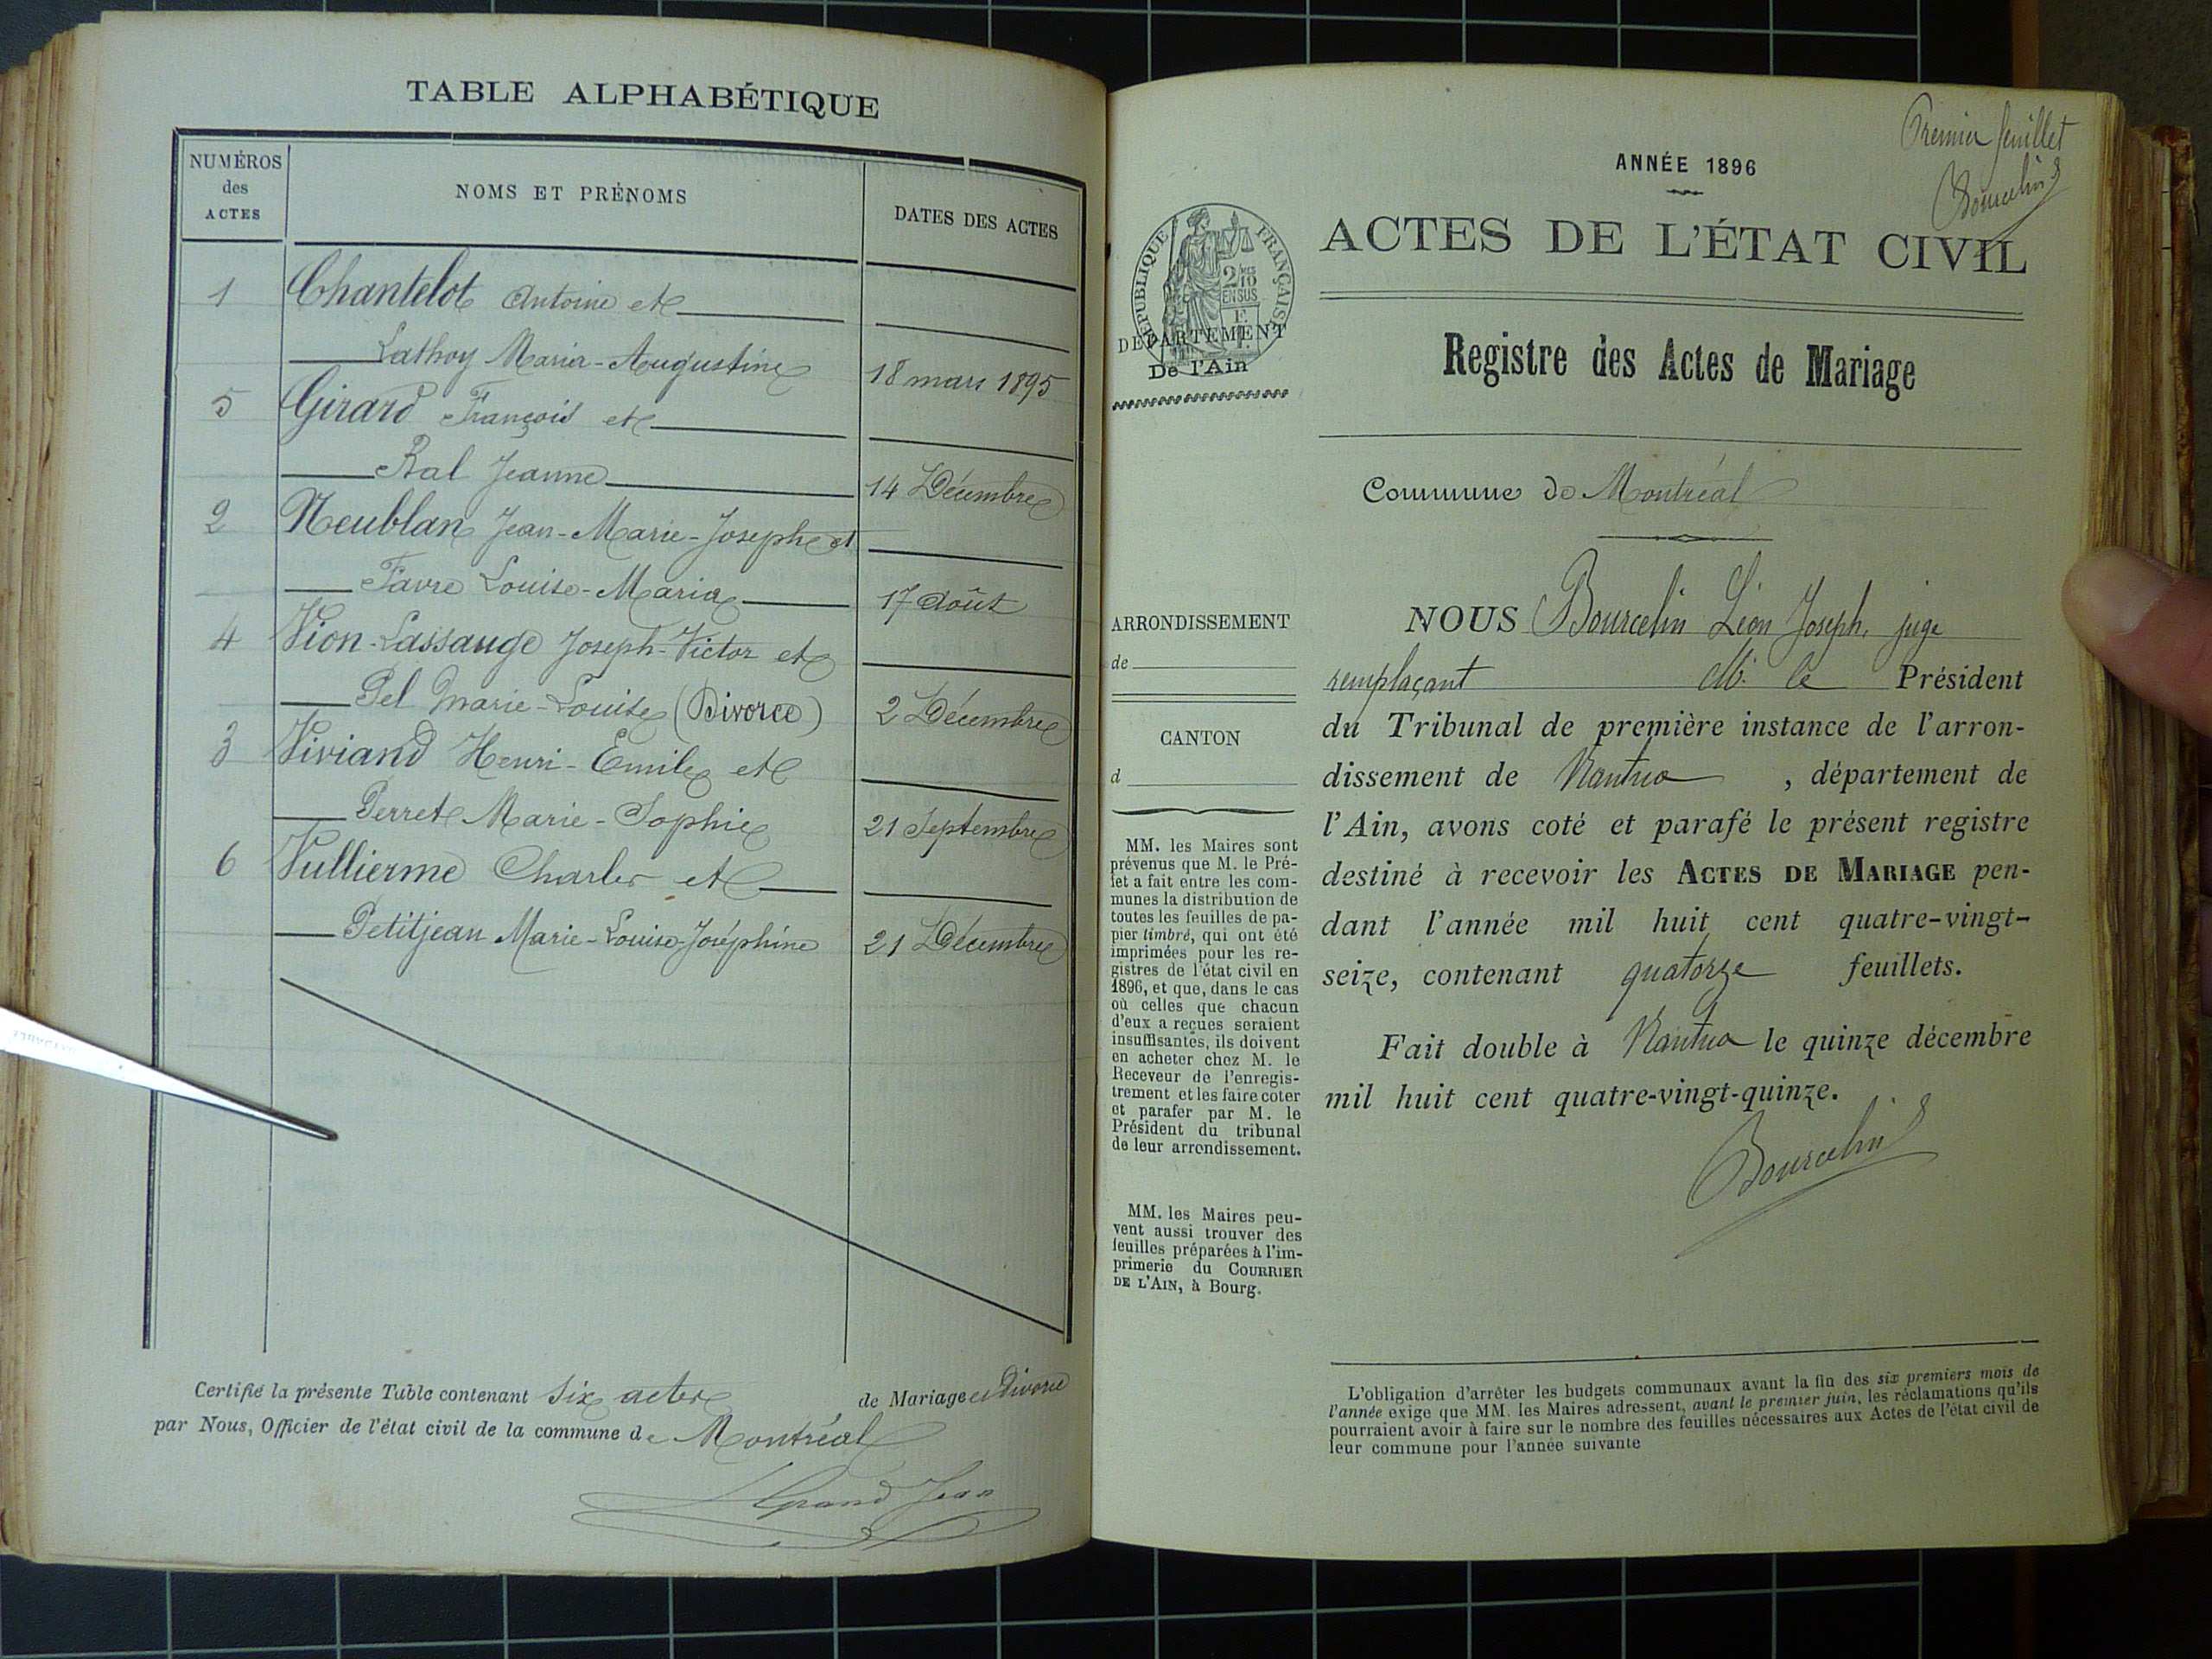 TABLE ALPHABÉTIQUE
NUMÉROS
des
ACTES
NOMS ET PRÉNOMS
DATES DES ACTES
1 Chantelot Antoine et
Lathoy Maria-Augustine 18 mars 1895
5 Girard François et
Ral Jeanne 14 Décembre
2 Neublan Jean-Marie-Joseph et
Favre Louise-Maria 17 Août
4 Vion-Lassauge Joseph-Victor et
Pel Marie-Louise (Divorce) 2 Décembre
3 Viviand Henri-Emile et
Perret Marie-Sophie 21 Septembre
6 Vullierme Charles et
Petitjean Marie-Louise-Joséphine 21 Décembre
Certifié la présente Table contenant Six actes de Mariage et Divorce
par Nous, Officier de l'état civil de la commune de Montréal
Grand Jean
Premier feuillet
Bourcelin
ANNÉE 1896
RÉPUBLIQUE FRANÇAISE
2/10
EN SUS
DÉPARTEMENT
De l'Ain
ACTES DE L'ÉTAT CIVIL
Registre des Actes de Mariage
Commune de Montréal
ARRONDISSEMENT
de
CANTON
d
MM. les Maires sont
prévenus que M. le Pré-
fet a fait entre les com-
munes la distribution de
toutes les feuilles de pa-
pier timbré, qui ont été
imprimées pour les re-
gistres de l'état civil en
1896, et que, dans le cas
où celles que chacun
d'eux a reçues seraient
insuffisantes, ils doivent
en acheter chez M. le
Receveur de l'enregis-
trement et les faire coter
et parafer par M. le
Président du tribunal
de leur arrondissement.
MM. les Maires peu-
vent aussi trouver des
feuilles préparées à l'im-
primerie du COURRIER
DE L'AIN, à Bourg.
NOUS Bourcelin Léon Joseph, juge
remplaçant M. le Président
du Tribunal de première instance de l'arron-
dissement de Nantua, département de
l'Ain, avons coté et parafé le présent registre
destiné à recevoir les ACTES DE MARIAGE pen-
dant l'année mil huit cent quatre-vingt-
seize, contenant quatorze feuillets.
Fait double à Nantua le quinze décembre
mil huit cent quatre-vingt-quinze.
Bourcelin
L'obligation d'arrêter les budgets communaux avant la fin des six premiers mois de
l'année exige que MM. les Maires adressent, avant le premier juin, les réclamations qu'ils
pourraient avoir à faire sur le nombre des feuilles nécessaires aux Actes de l'état civil de
leur commune pour l'année suivante